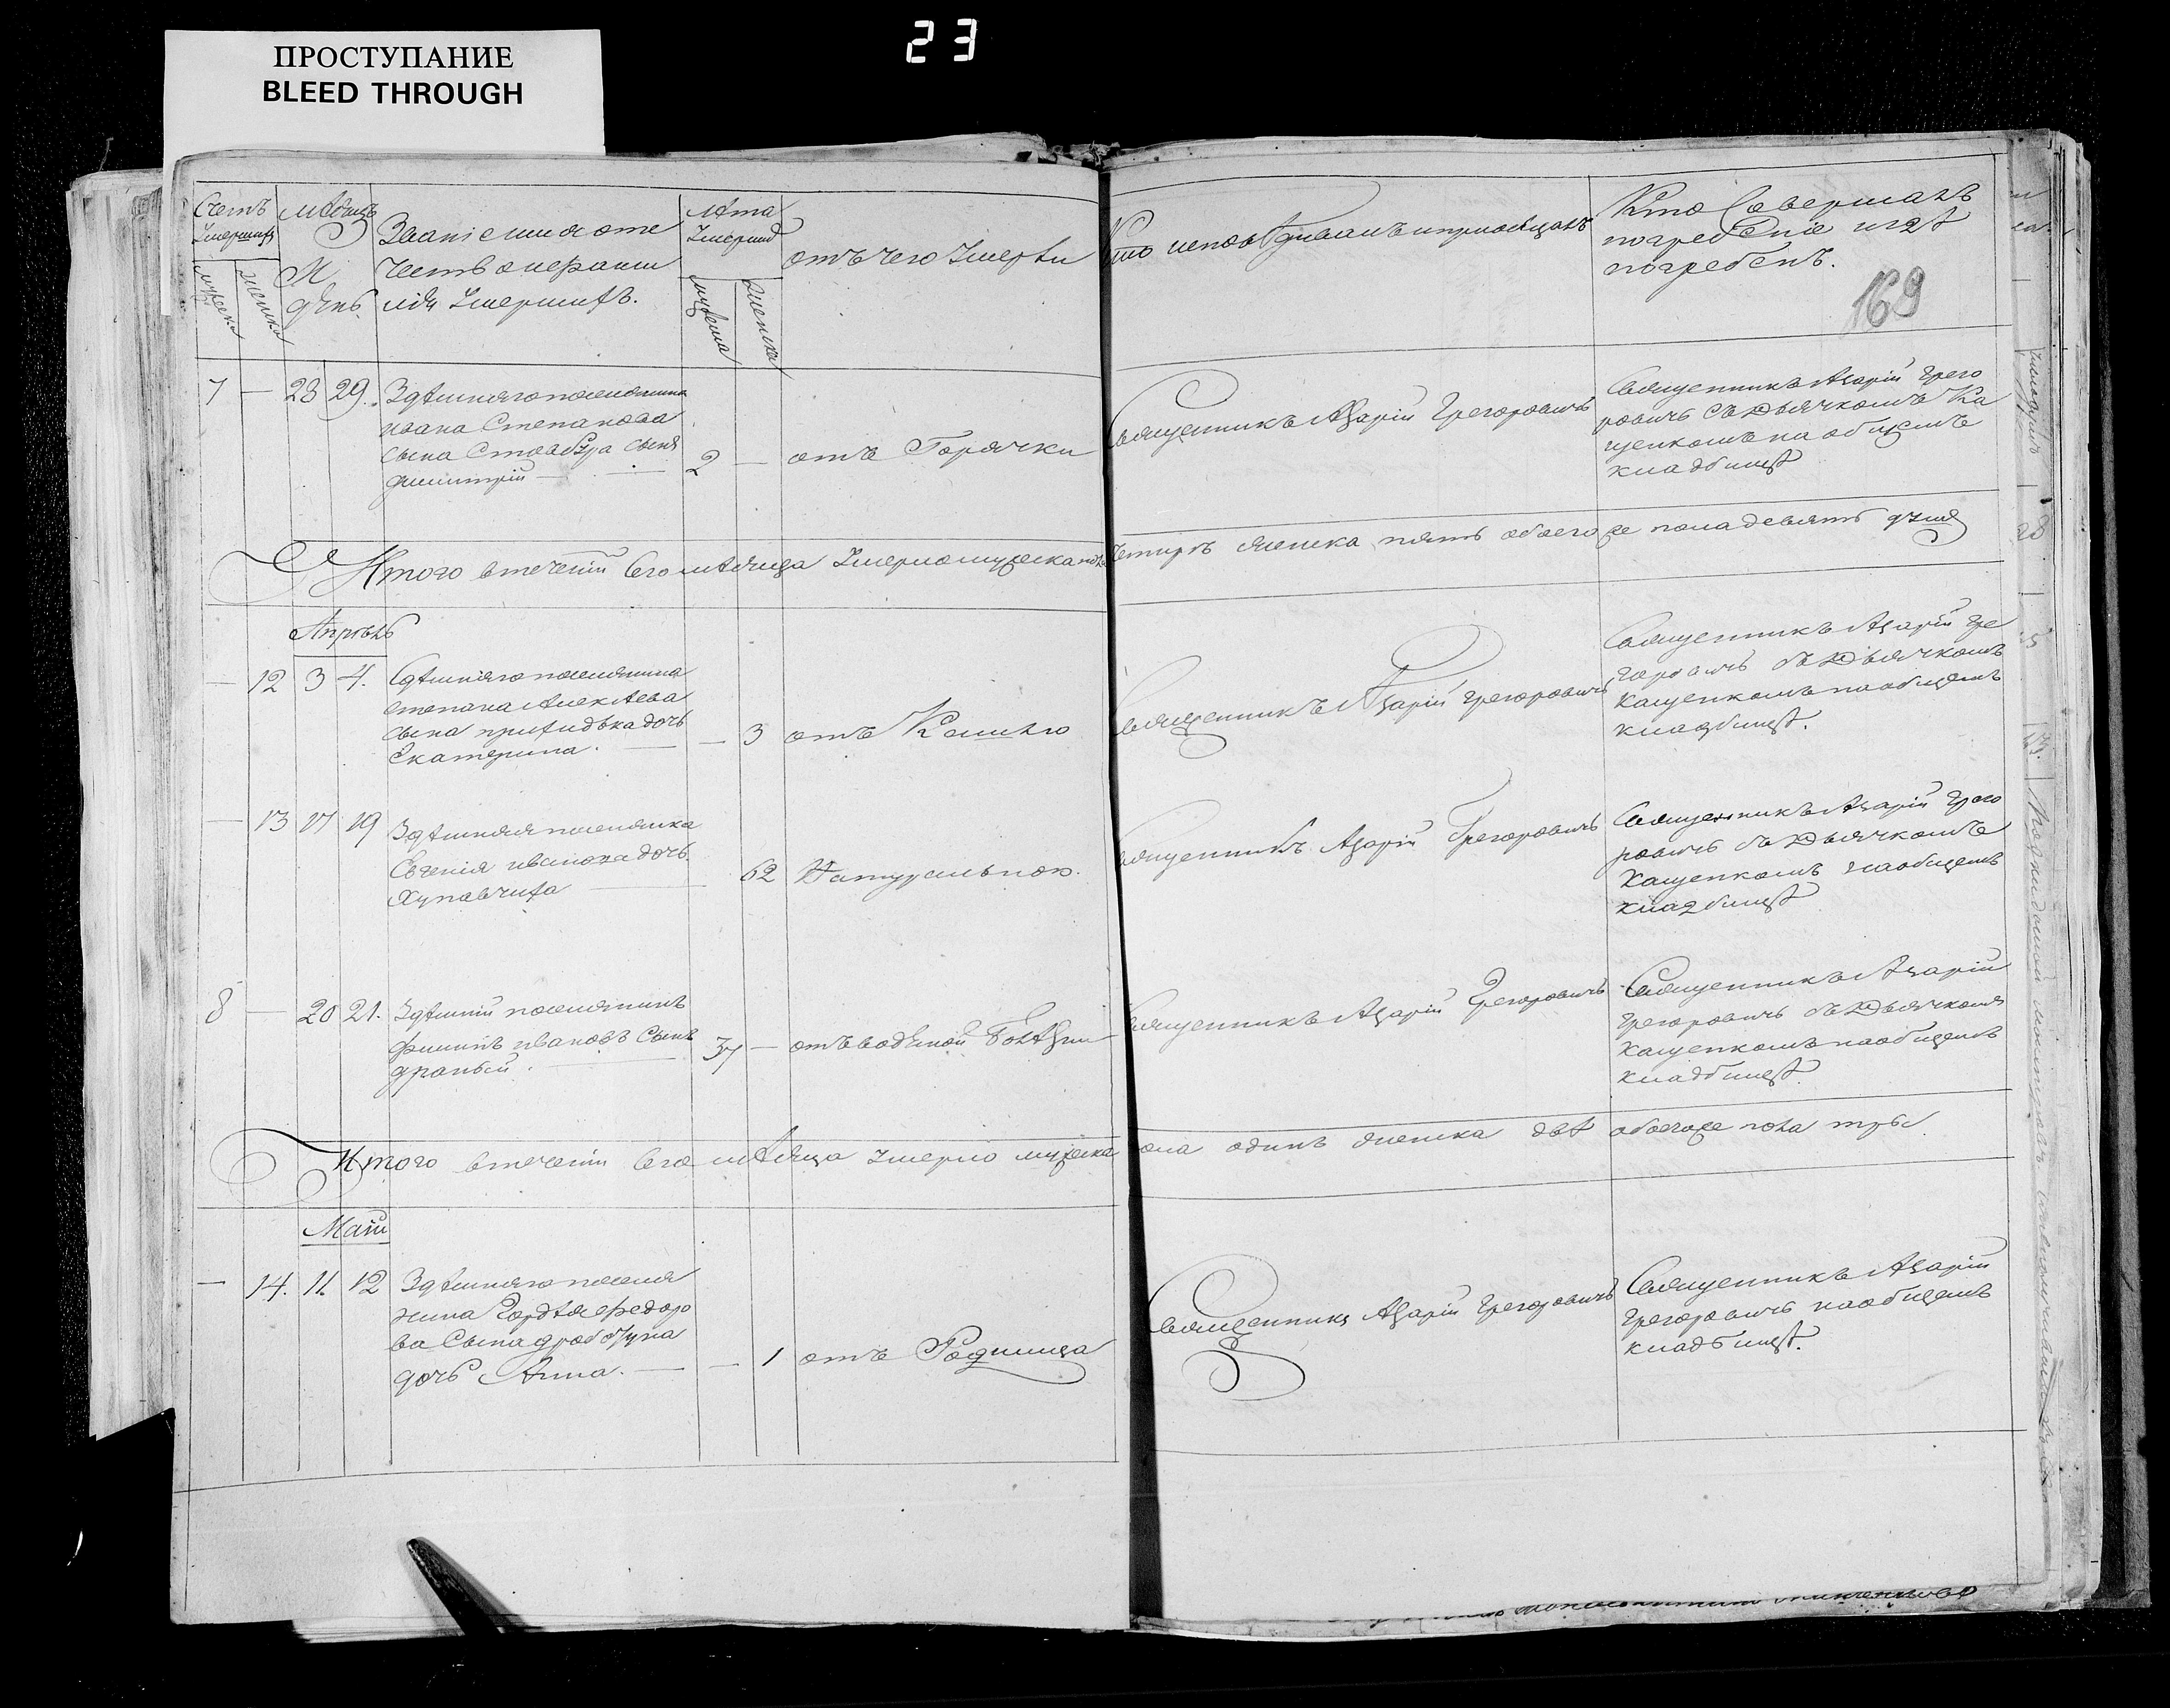 23
ПРОСТУПАНИЕ
BLEED THROUGH
Счетъ
Умершихъ
мужеска
женска
мѣсяцъ
И
день.
Званіе имя оте
чество и фами
лія Умершихъ.
лѣта
Умершихъ
мужеска
женска
отъ чего Умерли
Кто исповѣдывалъ и приобщалъ
Кто Совершалъ
погребеніе и гдѣ
погребенъ.
169
7 — 28 29. Здѣшняго поселянина
ивана Степанова
сына сынъ
димитрій —
2 — отъ Горячки
Священникъ Азарій Грегоровичъ
Священникъ Азарій Грего
ровичъ съ Дьячкомъ Ка
щенкомъ на общемъ
кладбищѣ
Итого втеченіи Сего мѣсяца Умерло мужеска четыре женска пять обоего же пола девять душъ
Апрѣль
— 12 3 4. Сдѣшняго поселянина
степана Алексѣева
сына дочь
Екатерина. —
— 3 отъ Кашлю
Священникъ Азарій Грегоровичъ
Священникъ Азарій Гре
горовичъ съ Дьячкомъ
Кащенкомъ на общемъ
кладбищѣ.
— 13 17 19 Здѣшняя поселянка
Евгенія иванова дочь
—
62 Натуральною.
Священникъ Азарій Грегоровичъ
Священникъ Азарій Грего
ровичъ съ Дьячкомъ
Кащенкомъ на общемъ
кладбищѣ
8 — 20 21. Здѣшній поселянинъ
филипъ ивановъ Сынъ
драный. —
37 — отъ водяной Болѣзни
Священникъ Азарій Грегоровичъ
Священникъ Азарій
Грегоровичъ съ Дьячкомъ
Кащенкомъ на общемъ
кладбищѣ.
Итого втеченіи Сего мѣсяца умерло мужеска пола одинъ женска двѣ обоего же пола три
Маій
— 14. 11 12 Здѣшняго поселя
нина Гордѣя Федоро
ва Сына
дочь Анна. —
— 1 отъ Родимца
Священникъ Азарій Грегоровичъ
Священникъ Азарій
Грегоровичъ на общемъ
кладбищѣ.